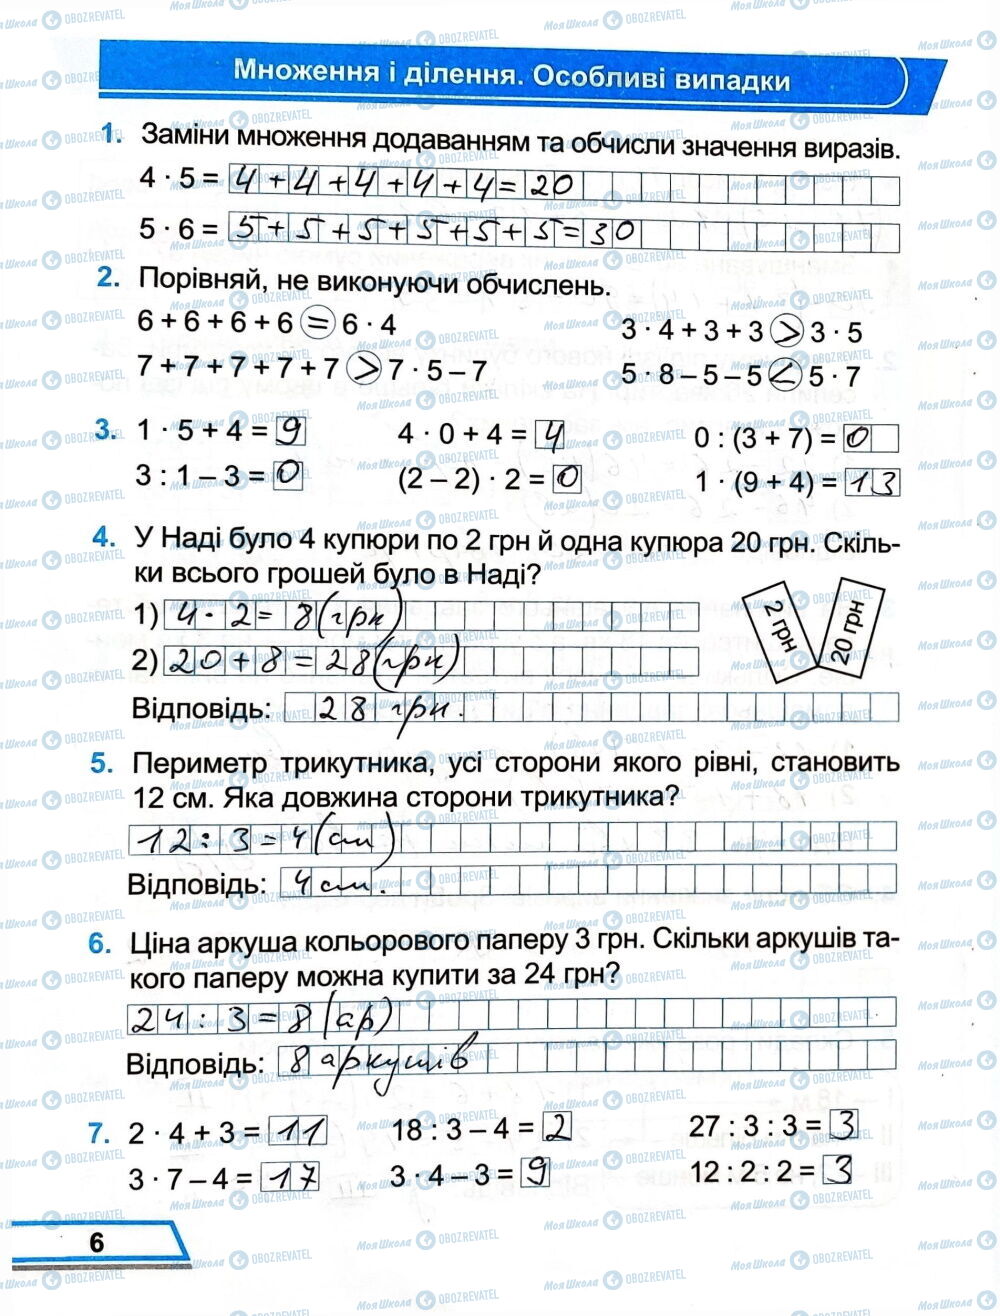 Множення і ділення. Особливі випадки
1. Заміни множення додаванням та обчисли значення виразів.
4 · 5 = 4 + 4 + 4 + 4 + 4 = 20
5 · 6 = 5 + 5 + 5 + 5 + 5 + 5 = 30
2. Порівняй, не виконуючи обчислень.
6 + 6 + 6 + 6 = 6 · 4 3 · 4 + 3 + 3 > 3 · 5
7 + 7 + 7 + 7 + 7 > 7 · 5 – 7 5 · 8 – 5 – 5 < 5 · 7
3. 1 · 5 + 4 = 9 4 · 0 + 4 = 4 0 : (3 + 7) = 0
3 : 1 – 3 = 0 (2 – 2) · 2 = 0 1 · (9 + 4) = 13
4. У Наді було 4 купюри по 2 грн й одна купюра 20 грн. Скіль-
ки всього грошей було в Наді?
1) 4 · 2 = 8 (грн)
2) 20 + 8 = 28 (грн)
2 грн 20 грн
Відповідь: 28 грн.
5. Периметр трикутника, усі сторони якого рівні, становить
12 см. Яка довжина сторони трикутника?
12 : 3 = 4 (см)
Відповідь: 4 см.
6. Ціна аркуша кольорового паперу 3 грн. Скільки аркушів та-
кого паперу можна купити за 24 грн?
24 : 3 = 8 (ар)
Відповідь: 8 аркушів
7. 2 · 4 + 3 = 11 18 : 3 – 4 = 2 27 : 3 : 3 = 3
3 · 7 – 4 = 17 3 · 4 – 3 = 9 12 : 2 : 2 = 3
6
МояШкола OBOZREVATEL